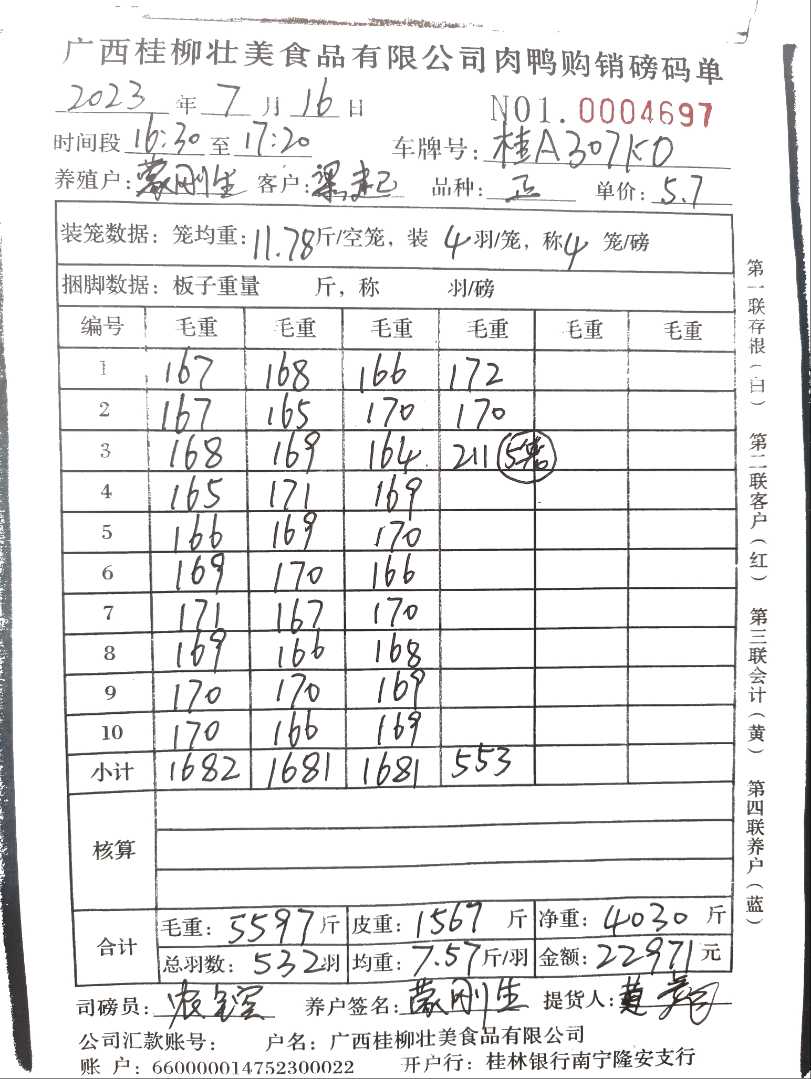 广西桂柳壮美食品有限公司肉鸭购销磅码单
2023 年 7 月 16 日 NO1. 0004697
时间段 16:30 至 17:20 车牌号: 桂A307KD
养殖户: 蒙刚生 客户: 梁 品种: 正 单价: 5.7
装笼数据: 笼均重: 11.78 斤/空笼, 装 4 羽/笼, 称 4 笼/磅
捆脚数据: 板子重量 斤, 称 羽/磅
编号 毛重 毛重 毛重 毛重 毛重 毛重
1 167 168 166 172
2 167 165 170 170
3 168 169 164 211 5
4 165 171 169
5 166 169 170
6 169 170 166
7 171 167 170
8 169 166 168
9 170 170 169
10 170 166 169
小计 1682 1681 1681 553
核算
合计 毛重: 5597 斤 皮重: 1567 斤 净重: 4030 斤
总羽数: 532 羽 均重: 7.57 斤/羽 金额: 22971 元
司磅员: 养户签名: 蒙刚生 提货人: 黄
公司汇款账号: 户名: 广西桂柳壮美食品有限公司
账 户: 660000014752300022 开户行: 桂林银行南宁隆安支行
第一联存根(白) 第二联客户(红) 第三联会计(黄) 第四联养户(蓝)